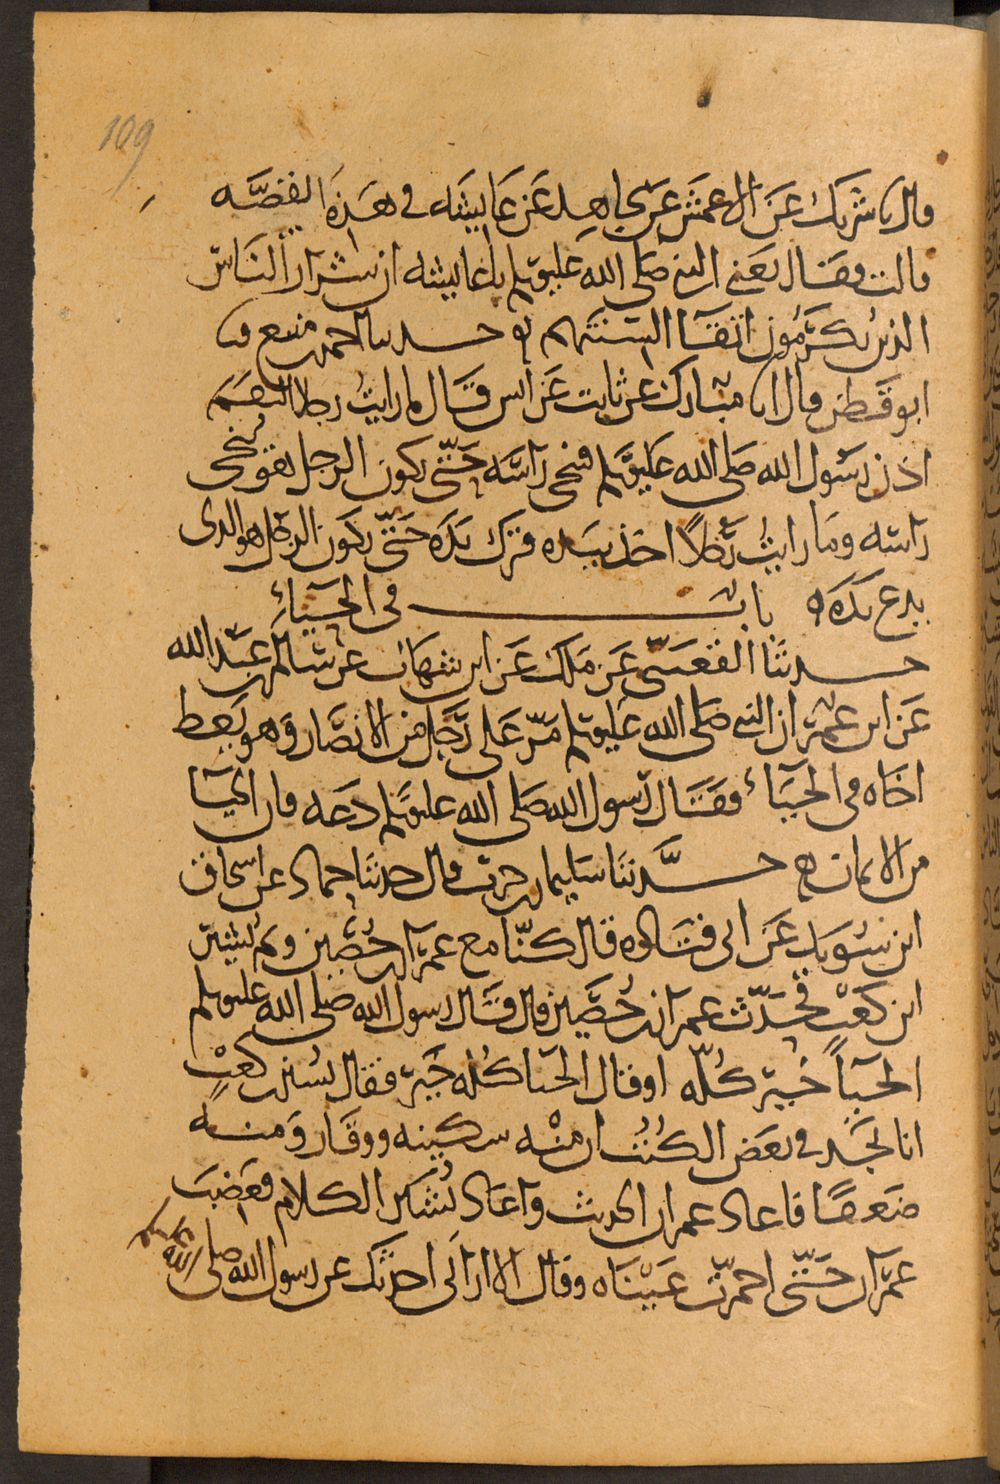 109
قال نا شريك عن الاعمش عن مجاهد عن عايشه في هذه القصه
قالت فقال يعني النبي صلى الله عليه وسلم يا عايشه ان شرار الناس
الذين يكرمون اتقا السنتهم حدثنا احمد بن منيع نا
ابو قطن قال انا مبارك عن ثابت عن انس قال ما رايت رجلا التقم
اذن رسول الله صلى الله عليه وسلم فنحى راسه حتى يكون الرجل هو ينحى
راسه وما رايت رجلا اخذ بيده فترك يده حتى يكون الرجل هو الذى
يدع يده باب في الحياء
حدثنا القعنبي عن ملك عن ابن شهاب عن سالم بن عبد الله
عن ابن عمر ان النبي صلى الله عليه وسلم مر على رجل من الانصار وهو يعظ
اخاه في الحياء فقال رسول الله صلى الله عليه وسلم دعه فان الحيا
من الايمان حدثنا سليمان بن حرب قال حدثنا حماد عن اسحاق
ابن سويد عن ابي قتاده قال كنا مع عمران بن حصين وثم بشير
ابن كعب فحدث عمران بن حصين قال قال رسول الله صلى الله عليه وسلم
الحيا خير كله او قال الحيا كله خير فقال بشير بن كعب
انا نجد في بعض الكتب ان منه سكينه ووقار ومنه
ضعفا فاعاد عمران الحديث واعاد بشير الكلام فغضب
عمران حتى احمرت عيناه وقال الا اراني احدثك عن رسول الله صلى الله عليه وسلم